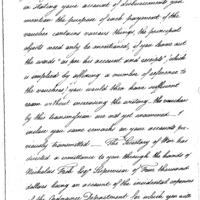 in stating your account of disbursements you
mention the purpose of each payment if the
voucher contains various things, the principal
objects need only be mentioned, if you leave out
the words "as per his account and receipt" which
is implied by affixing a number of reference to
the vouchers) you would then have sufficient
room without increasing the writing - the vouchers
by this transmission are not yet examined - I
enclose you some remarks on your accounts pre-
viously transmitted - The Secretary of War has
directed a remittance to you through the hands of
Nicholas Fish Esqr Supervisor of Four thousand
dollars being on account of the incidental expences
of the Ordnance Department for which you will